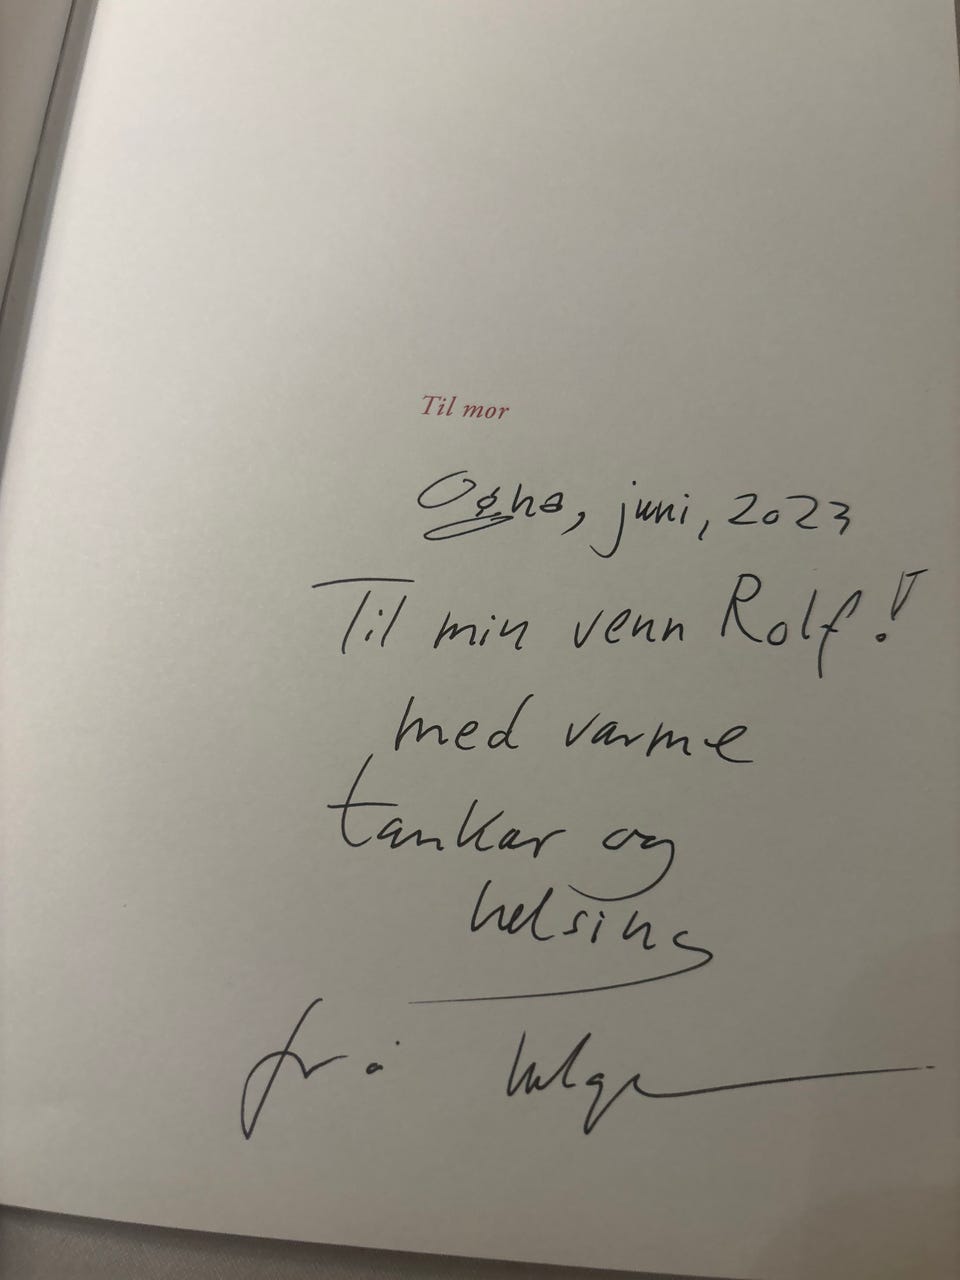 Til mor
Ogna, juni, 2023
Til min venn Rolf!
med varme
tankar og
helsing
frå Helge